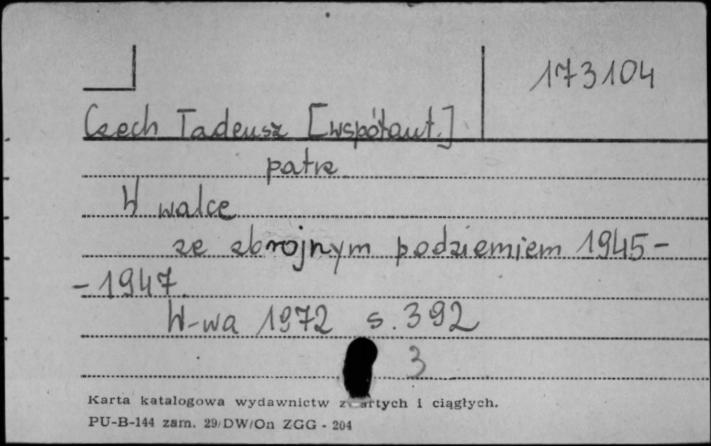 173104
Czech Tadeusz [współaut.]
patrz
W walce
ze zbrojnym podziemiem 1945-
-1947
W-wa 1972 s. 392
3
Karta katalogowa wydawnictw zwartych i ciągłych.
PU-B-144 zam. 29/DW/On ZGG - 204